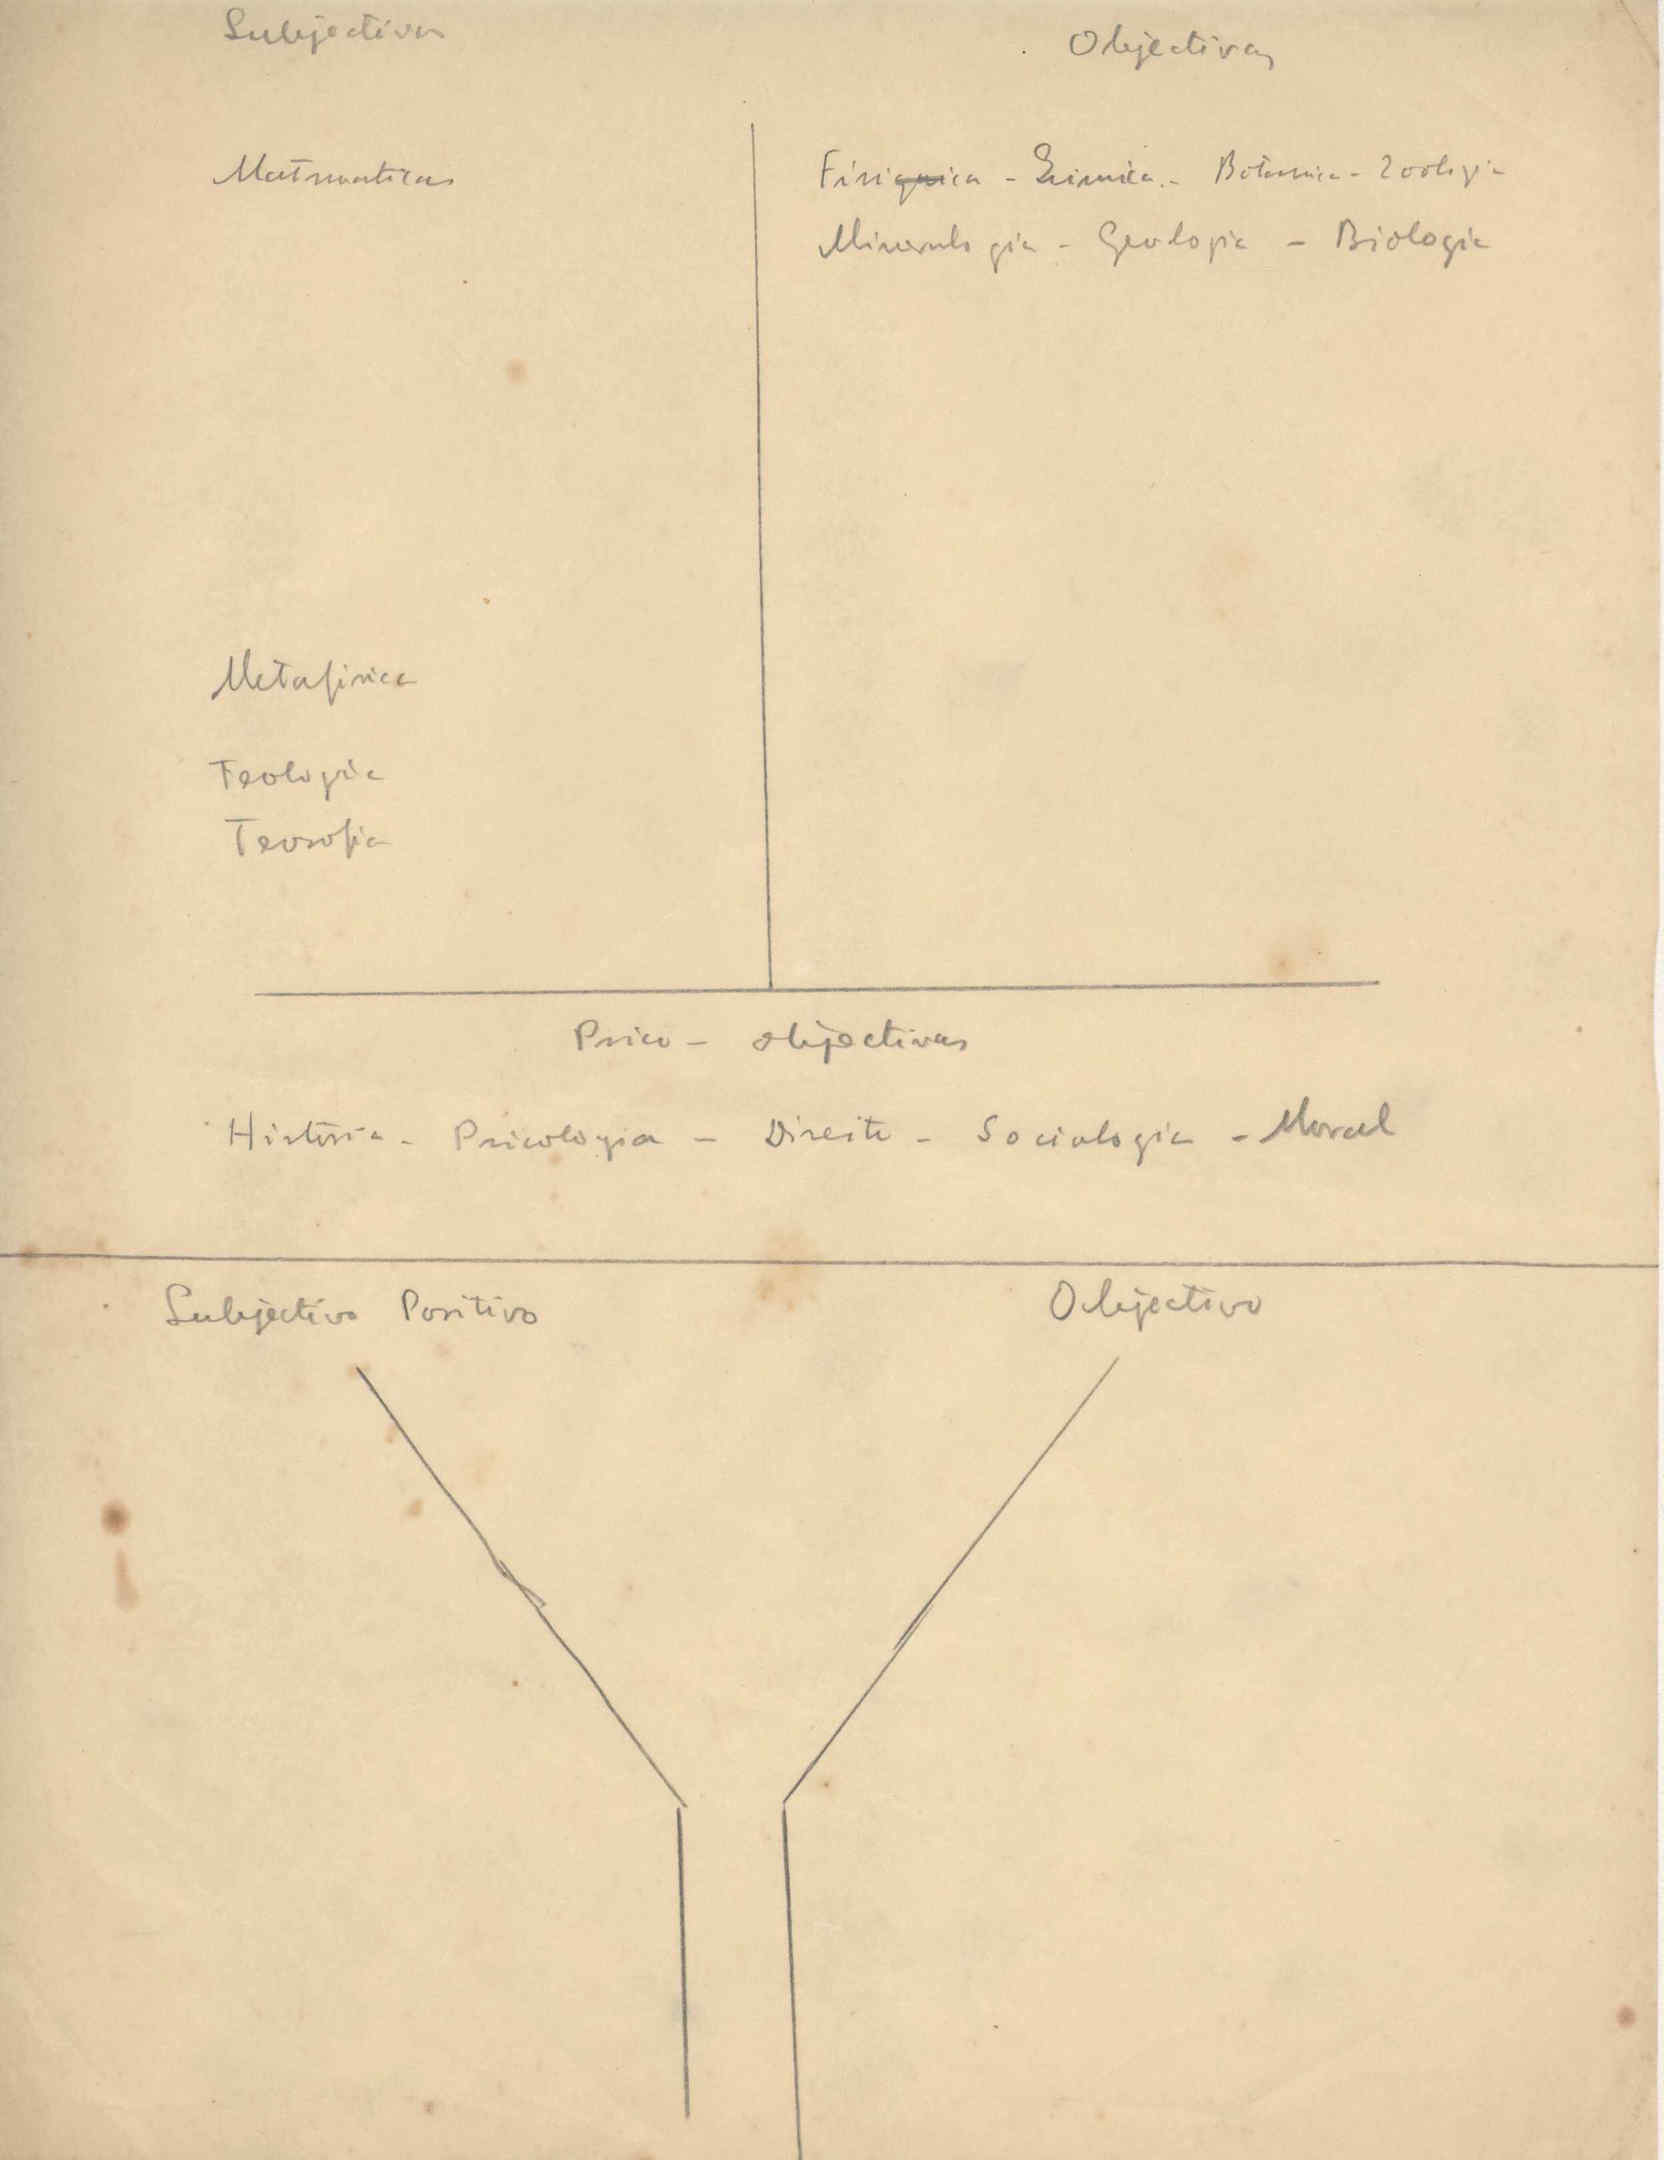 Subjectivas
Objectivas
Matematicas
Fisica - Quimica - Botanica - Zoologia
Mineralogia - Geologia - Biologia
Metafisica
Teologia
Teosofia
Psico - objectivas
Historia - Psicologia - Direito - Sociologia - Moral
Subjectivo Positivo
Objectivo